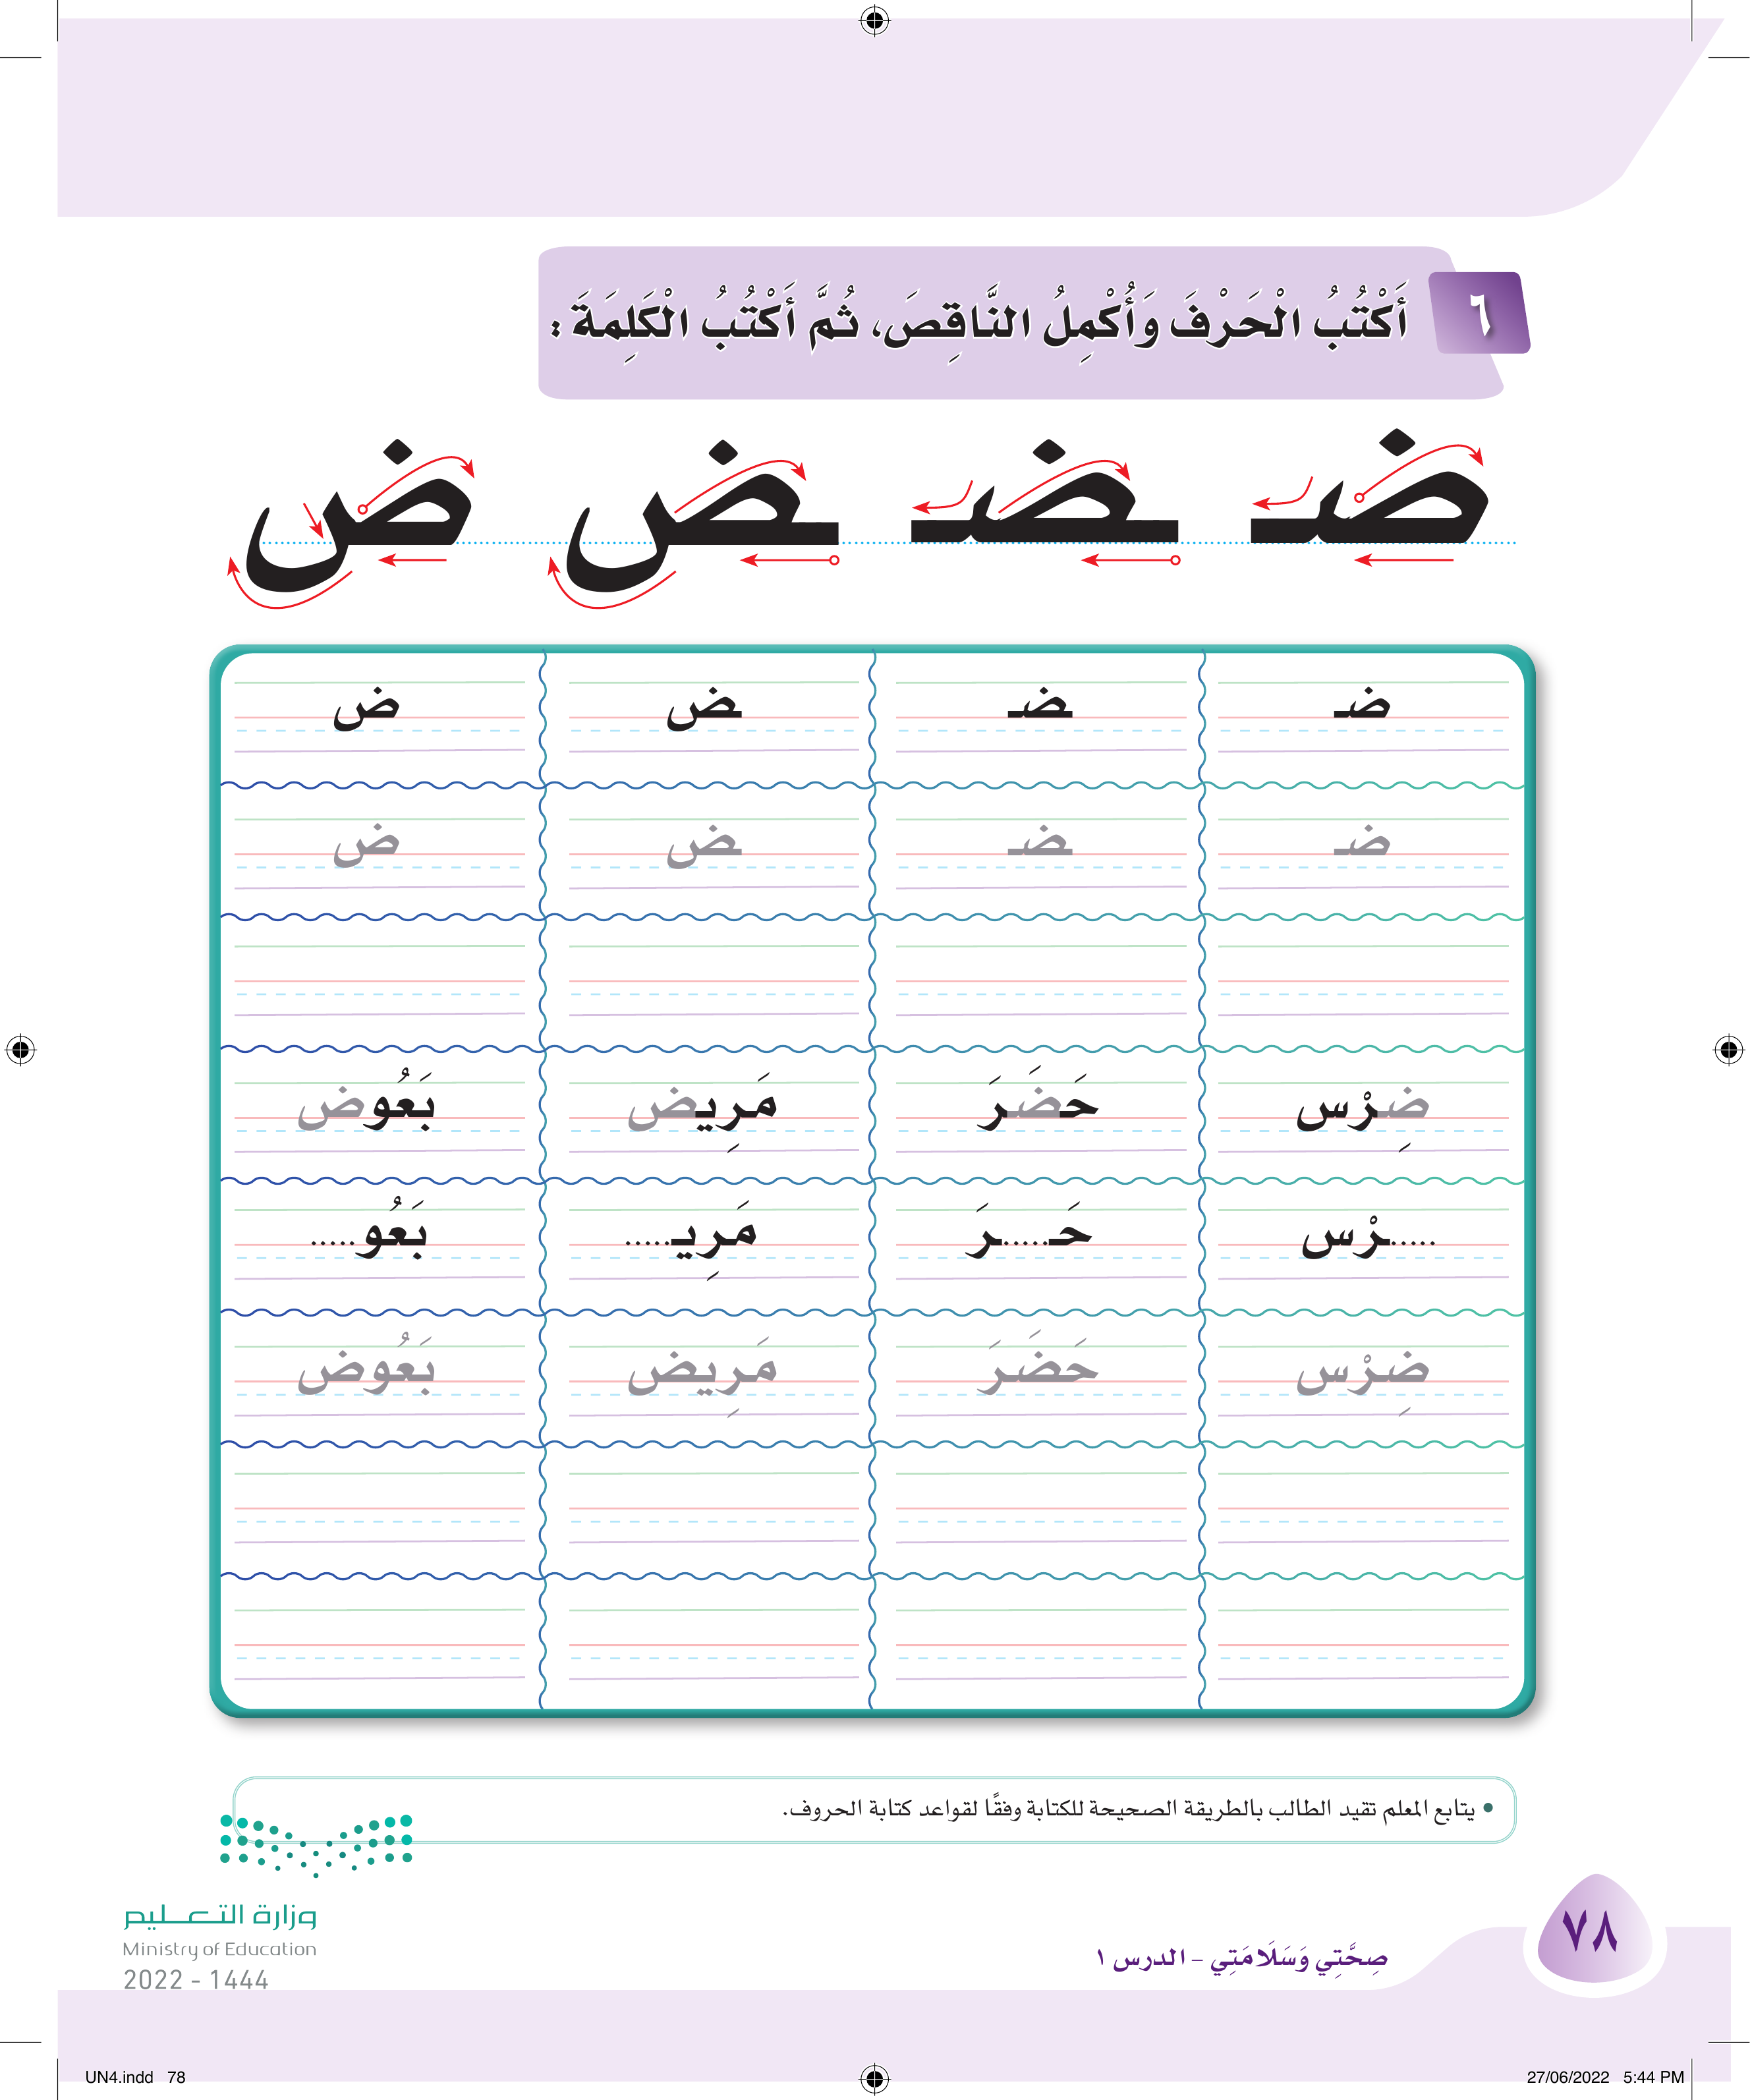 ٦
أَكْتُبُ الْحَرْفَ وَأُكْمِلُ النَّاقِصَ، ثُمَّ أَكْتُبُ الْكَلِمَةَ :
ضـ ـضـ ـض ض
ضـ ـضـ ـض ض
ضـ ـضـ ـض ض
ضِرْس حَضَرَ مَرِيض بَعُوض
.....ـرْس حَـ.....ـرَ مَرِيـ..... بَعُو.....
ضِرْس حَضَرَ مَرِيض بَعُوض
• يتابع المعلم تقيد الطالب بالطريقة الصحيحة للكتابة وفقًا لقواعد كتابة الحروف.
وزارة التعـــليم
Ministry of Education
2022 - 1444
صِحَّتِي وَسَلَامَتِي – الدرس ١
٧٨
UN4.indd 78
27/06/2022 5:44 PM